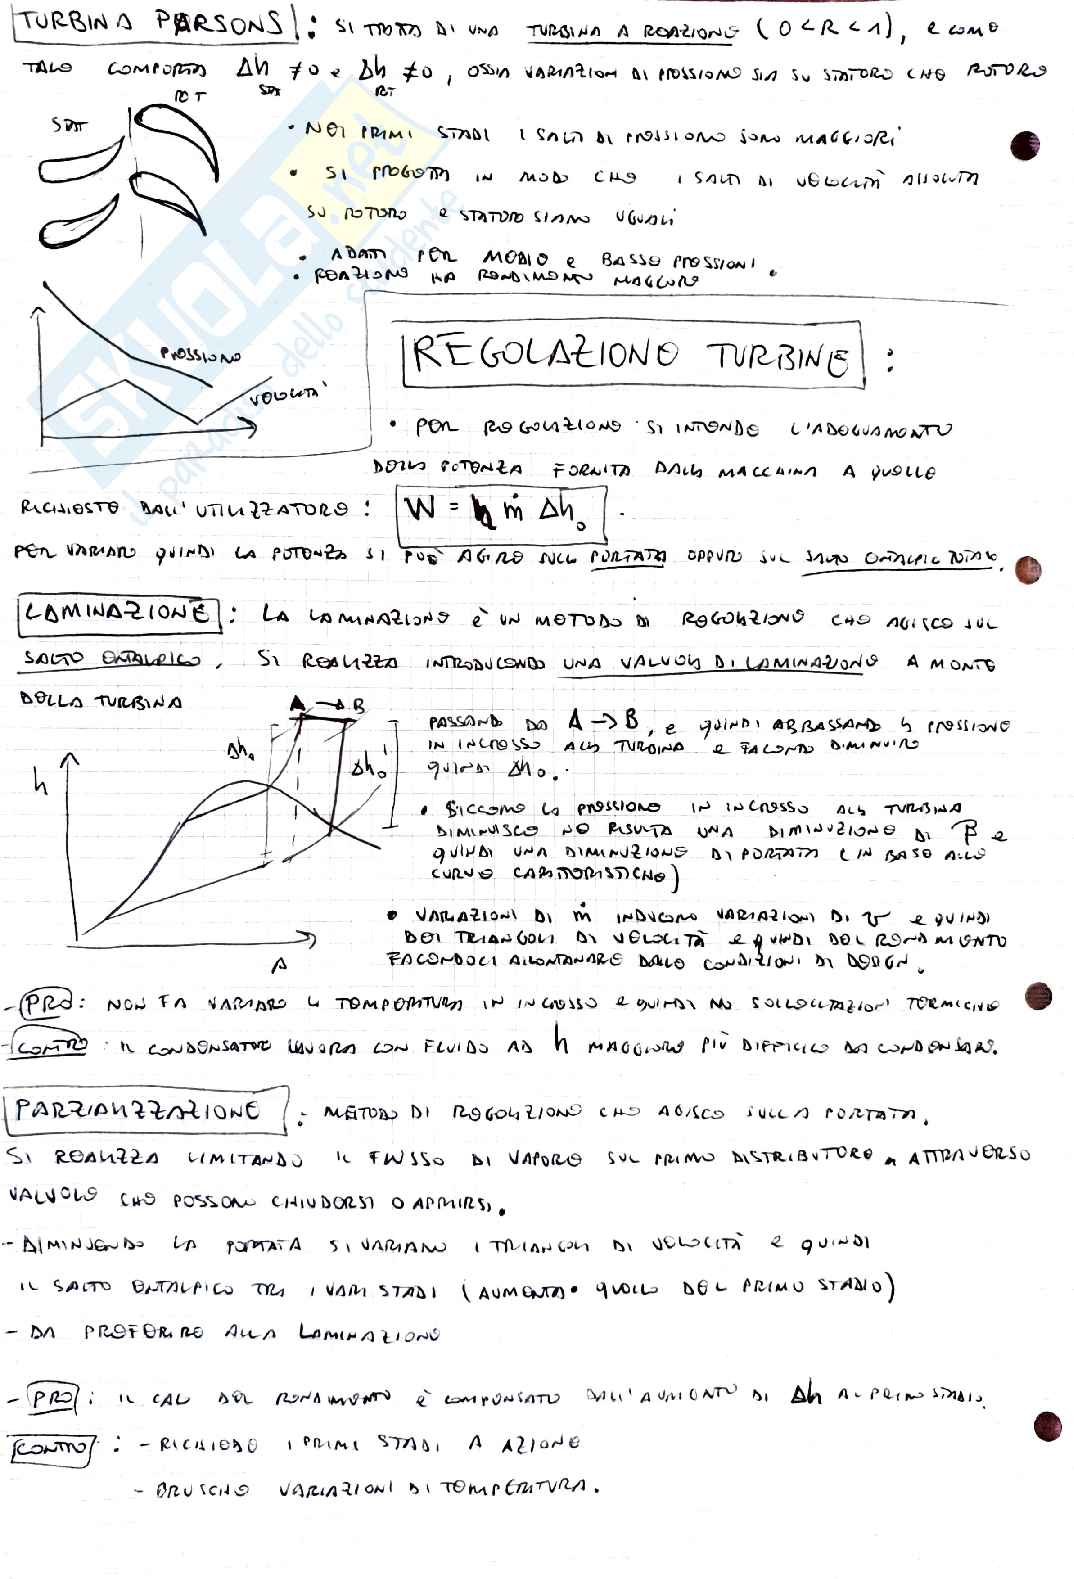 TURBINA PARSONS : SI TRATTA DI UNA TURBINA A REAZIONE (0<R<1), E COME
TALE COMPORTA Δh STAT ≠0 e Δh ROT ≠0, OSSIA VARIAZIONI DI PRESSIONE SIA SU STATORE CHE ROTORE
STAT
ROT
• NEI PRIMI STADI I SALTI DI PRESSIONE SONO MAGGIORI
• SI PROGETTA IN MODO CHE I SALTI DI VELOCITÀ ASSOLUTA
SU ROTORE E STATORE SIANO UGUALI
• ADATTI PER MEDIE E BASSE PRESSIONI.
• REAZIONE HA RENDIMENTO MAGGIORE
PRESSIONE
VELOCITÀ
REGOLAZIONE TURBINE :
• PER REGOLAZIONE SI INTENDE L'ADEGUAMENTO
DELLA POTENZA FORNITA DALLA MACCHINA A QUELLE
RICHIESTE DALL'UTILIZZATORE : W = η ṁ Δh₀ .
PER VARIARE QUINDI LA POTENZA SI PUÒ AGIRE SULLA PORTATA OPPURE SUL SALTO ENTALPICO TOTALE.
LAMINAZIONE : LA LAMINAZIONE È UN METODO DI REGOLAZIONE CHE AGISCE SUL
SALTO ENTALPICO. SI REALIZZA INTRODUCENDO UNA VALVOLA DI LAMINAZIONE A MONTE
DELLA TURBINA
A → B
h
Δh₀
Δh₀'
A
PASSANDO DA A → B, E QUINDI ABBASSANDO LA PRESSIONE
IN INGRESSO ALLA TURBINA E FACENDO DIMINUIRE
QUINDI Δh₀.
• SICCOME LA PRESSIONE IN INGRESSO ALLA TURBINA
DIMINUISCE NE RISULTA UNA DIMINUZIONE DI β E
QUINDI UNA DIMINUZIONE DI PORTATA (IN BASE ALLE
CURVE CARATTERISTICHE)
• VARIAZIONI DI ṁ INDUCONO VARIAZIONI DI v E QUINDI
DEI TRIANGOLI DI VELOCITÀ E QUINDI DEL RENDIMENTO
FACENDOCI ALLONTANARE DALLE CONDIZIONI DI DESIGN.
- PRO : NON FA VARIARE LA TEMPERATURA IN INGRESSO E QUINDI NO SOLLECITAZIONI TERMICHE
- CONTRO : IL CONDENSATORE LAVORA CON FLUIDO AD h MAGGIORE PIÙ DIFFICILE DA CONDENSARE.
PARZIALIZZAZIONE : METODO DI REGOLAZIONE CHE AGISCE SULLA PORTATA.
SI REALIZZA LIMITANDO IL FLUSSO DI VAPORE SUL PRIMO DISTRIBUTORE ATTRAVERSO
VALVOLE CHE POSSONO CHIUDERSI O APRIRSI.
- DIMINUENDO LA PORTATA SI VARIANO I TRIANGOLI DI VELOCITÀ E QUINDI
IL SALTO ENTALPICO TRA I VARI STADI (AUMENTA QUELLO DEL PRIMO STADIO)
- DA PREFERIRE ALLA LAMINAZIONE
- PRO : IL CALO DEL RENDIMENTO È COMPENSATO DALL'AUMENTO DI Δh AL PRIMO STADIO.
CONTRO : - RICHIEDE I PRIMI STADI A AZIONE
- BRUSCHE VARIAZIONI DI TEMPERATURA.
SKUOLA.net
il paradiso dello studente